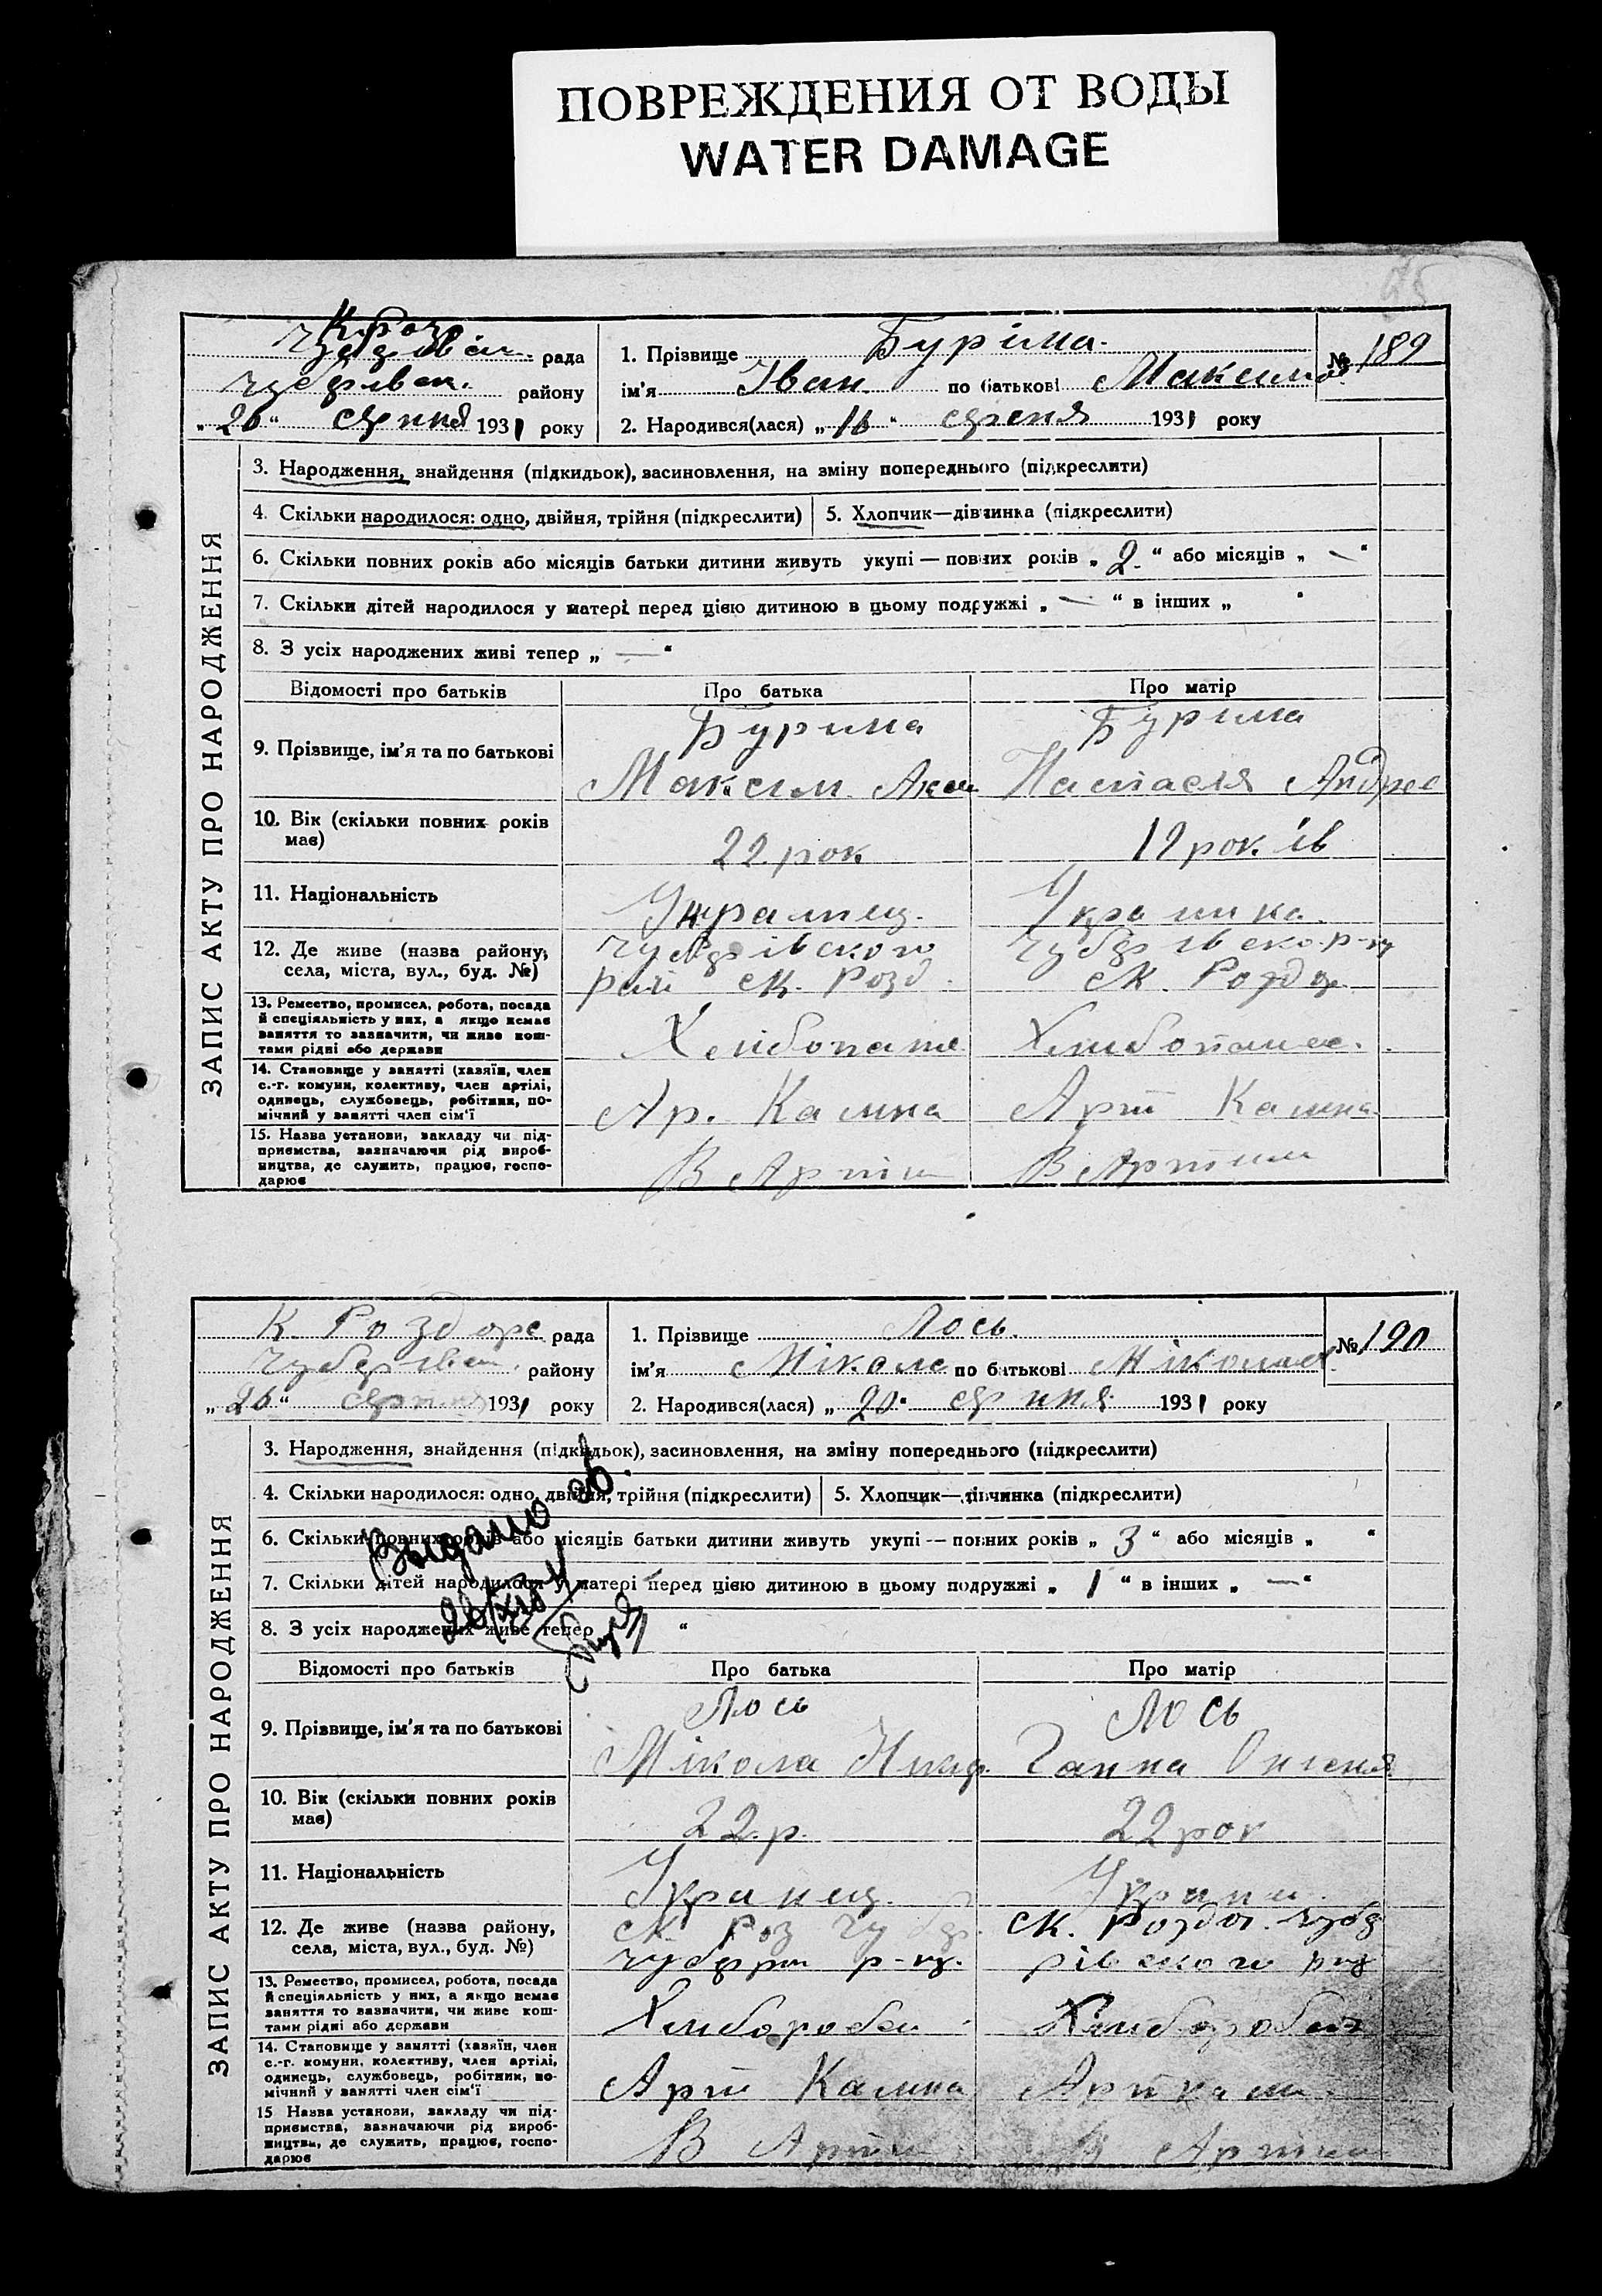 ПОВРЕЖДЕНИЯ ОТ ВОДЫ
WATER DAMAGE
рада
району
„ 26 “ 1931 року
1. Прізвище Буріма.
ім'я Іван по батькові Максимов
2. Народився(лася) „16“ 1931 року
№ 189
ЗАПИС АКТУ ПРО НАРОДЖЕННЯ
3. Народження, знайдення (підкидьок), засиновлення, на зміну попереднього (підкреслити)
4. Скільки народилося: одно, двійня, трійня (підкреслити)
5. Хлопчик—дівчинка (підкреслити)
6. Скільки повних років або місяців батьки дитини живуть укупі — повних років „ 2 “ або місяців „ — “
7. Скільки дітей народилося у матері перед цією дитиною в цьому подружжі „ — “ в інших „ “
8. З усіх народжених живі тепер „ — “
Відомості про батьків
Про батька
Про матір
9. Прізвище, ім'я та по батькові
Бурима
Максим
Бурима
Настасія Андрее
10. Вік (скільки повних років
має)
22 рок
19 років
11. Національність
Украинец.
Украинка.
12. Де живе (назва району,
села, міста, вул., буд. №)
ск. Розд
ск. Роздор
13. Ремество, промисел, робота, посада
й спеціяльність у них, а якщо немає
заняття то зазначити, чи живе кош-
тами рідні або держави
14. Становище у занятті (хазяїн, член
с.-г. комуни, колективу, член артілі,
одинець, службовець, робітник, по-
мічний у занятті член сім'ї
Ар. Калина
Арт Калина
15. Назва установи, закладу чи під-
приємства, зазначаючи рід вироб-
ництва, де служить, працює, госпо-
дарює
В Артіи
В Артили
К. Роздоре рада
району
„ 26 “ 1931 року
1. Прізвище Лось.
ім'я Мікола по батькові Міколаев
2. Народився(лася) „ 20 “ 1931 року
№ 190
ЗАПИС АКТУ ПРО НАРОДЖЕННЯ
3. Народження, знайдення (підкидьок), засиновлення, на зміну попереднього (підкреслити)
4. Скільки народилося: одно, двійня, трійня (підкреслити)
5. Хлопчик—дівчинка (підкреслити)
6. Скільки повних років або місяців батьки дитини живуть укупі — повних років „ 3 “ або місяців „ “
7. Скільки дітей народилося у матері перед цією дитиною в цьому подружжі „ 1 “ в інших „ — “
8. З усіх народжених живе тепер „ 1 “
Выдано
Відомості про батьків
Про батька
Про матір
9. Прізвище, ім'я та по батькові
Лось
Мікола
Лось
Ганна
10. Вік (скільки повних років
має)
22 р.
22 рок
11. Національність
12. Де живе (назва району,
села, міста, вул., буд. №)
ск. Роз
ск. Роздо.
13. Ремество, промисел, робота, посада
й спеціяльність у них, а якщо немає
заняття то зазначити, чи живе кош-
тами рідні або держави
14. Становище у занятті (хазяїн, член
с.-г. комуни, колективу, член артілі,
одинець, службовець, робітник, по-
мічний у занятті член сім'ї
Арт Калина
Арт кали.
15 Назва установи, закладу чи під-
приємства, зазначаючи рід вироб-
ництва, де служить, працює, госпо-
дарює
В Артіи
В Артили